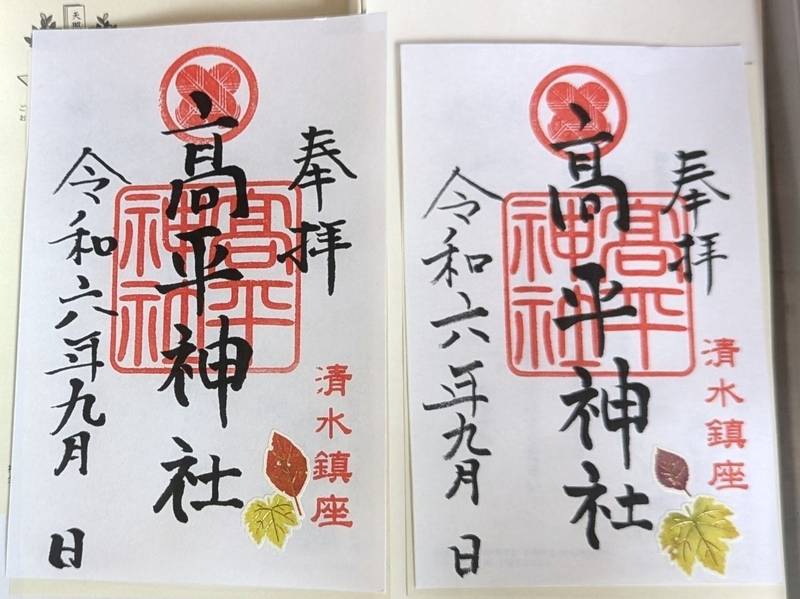 奉拝
髙平神社
令和六年九月 日
清水鎮座
髙平神社
奉拝
髙平神社
令和六年九月 日
清水鎮座
髙平神社
天照